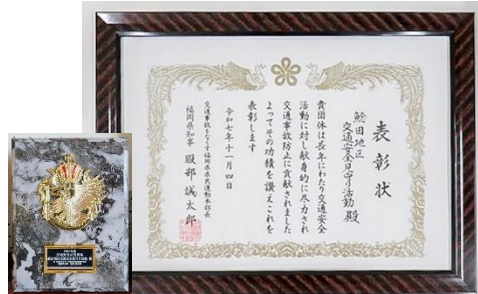 表彰状
鯰田地区
交通安全見守り活動 殿
貴団体は長年にわたり交通安全
活動に対し献身的に尽力され
交通事故防止に貢献されました
よってその功績を讃えこれを
表彰します
令和七年十一月四日
交通事故をなくす福岡県県民運動本部長
福岡県知事 服部誠太郎